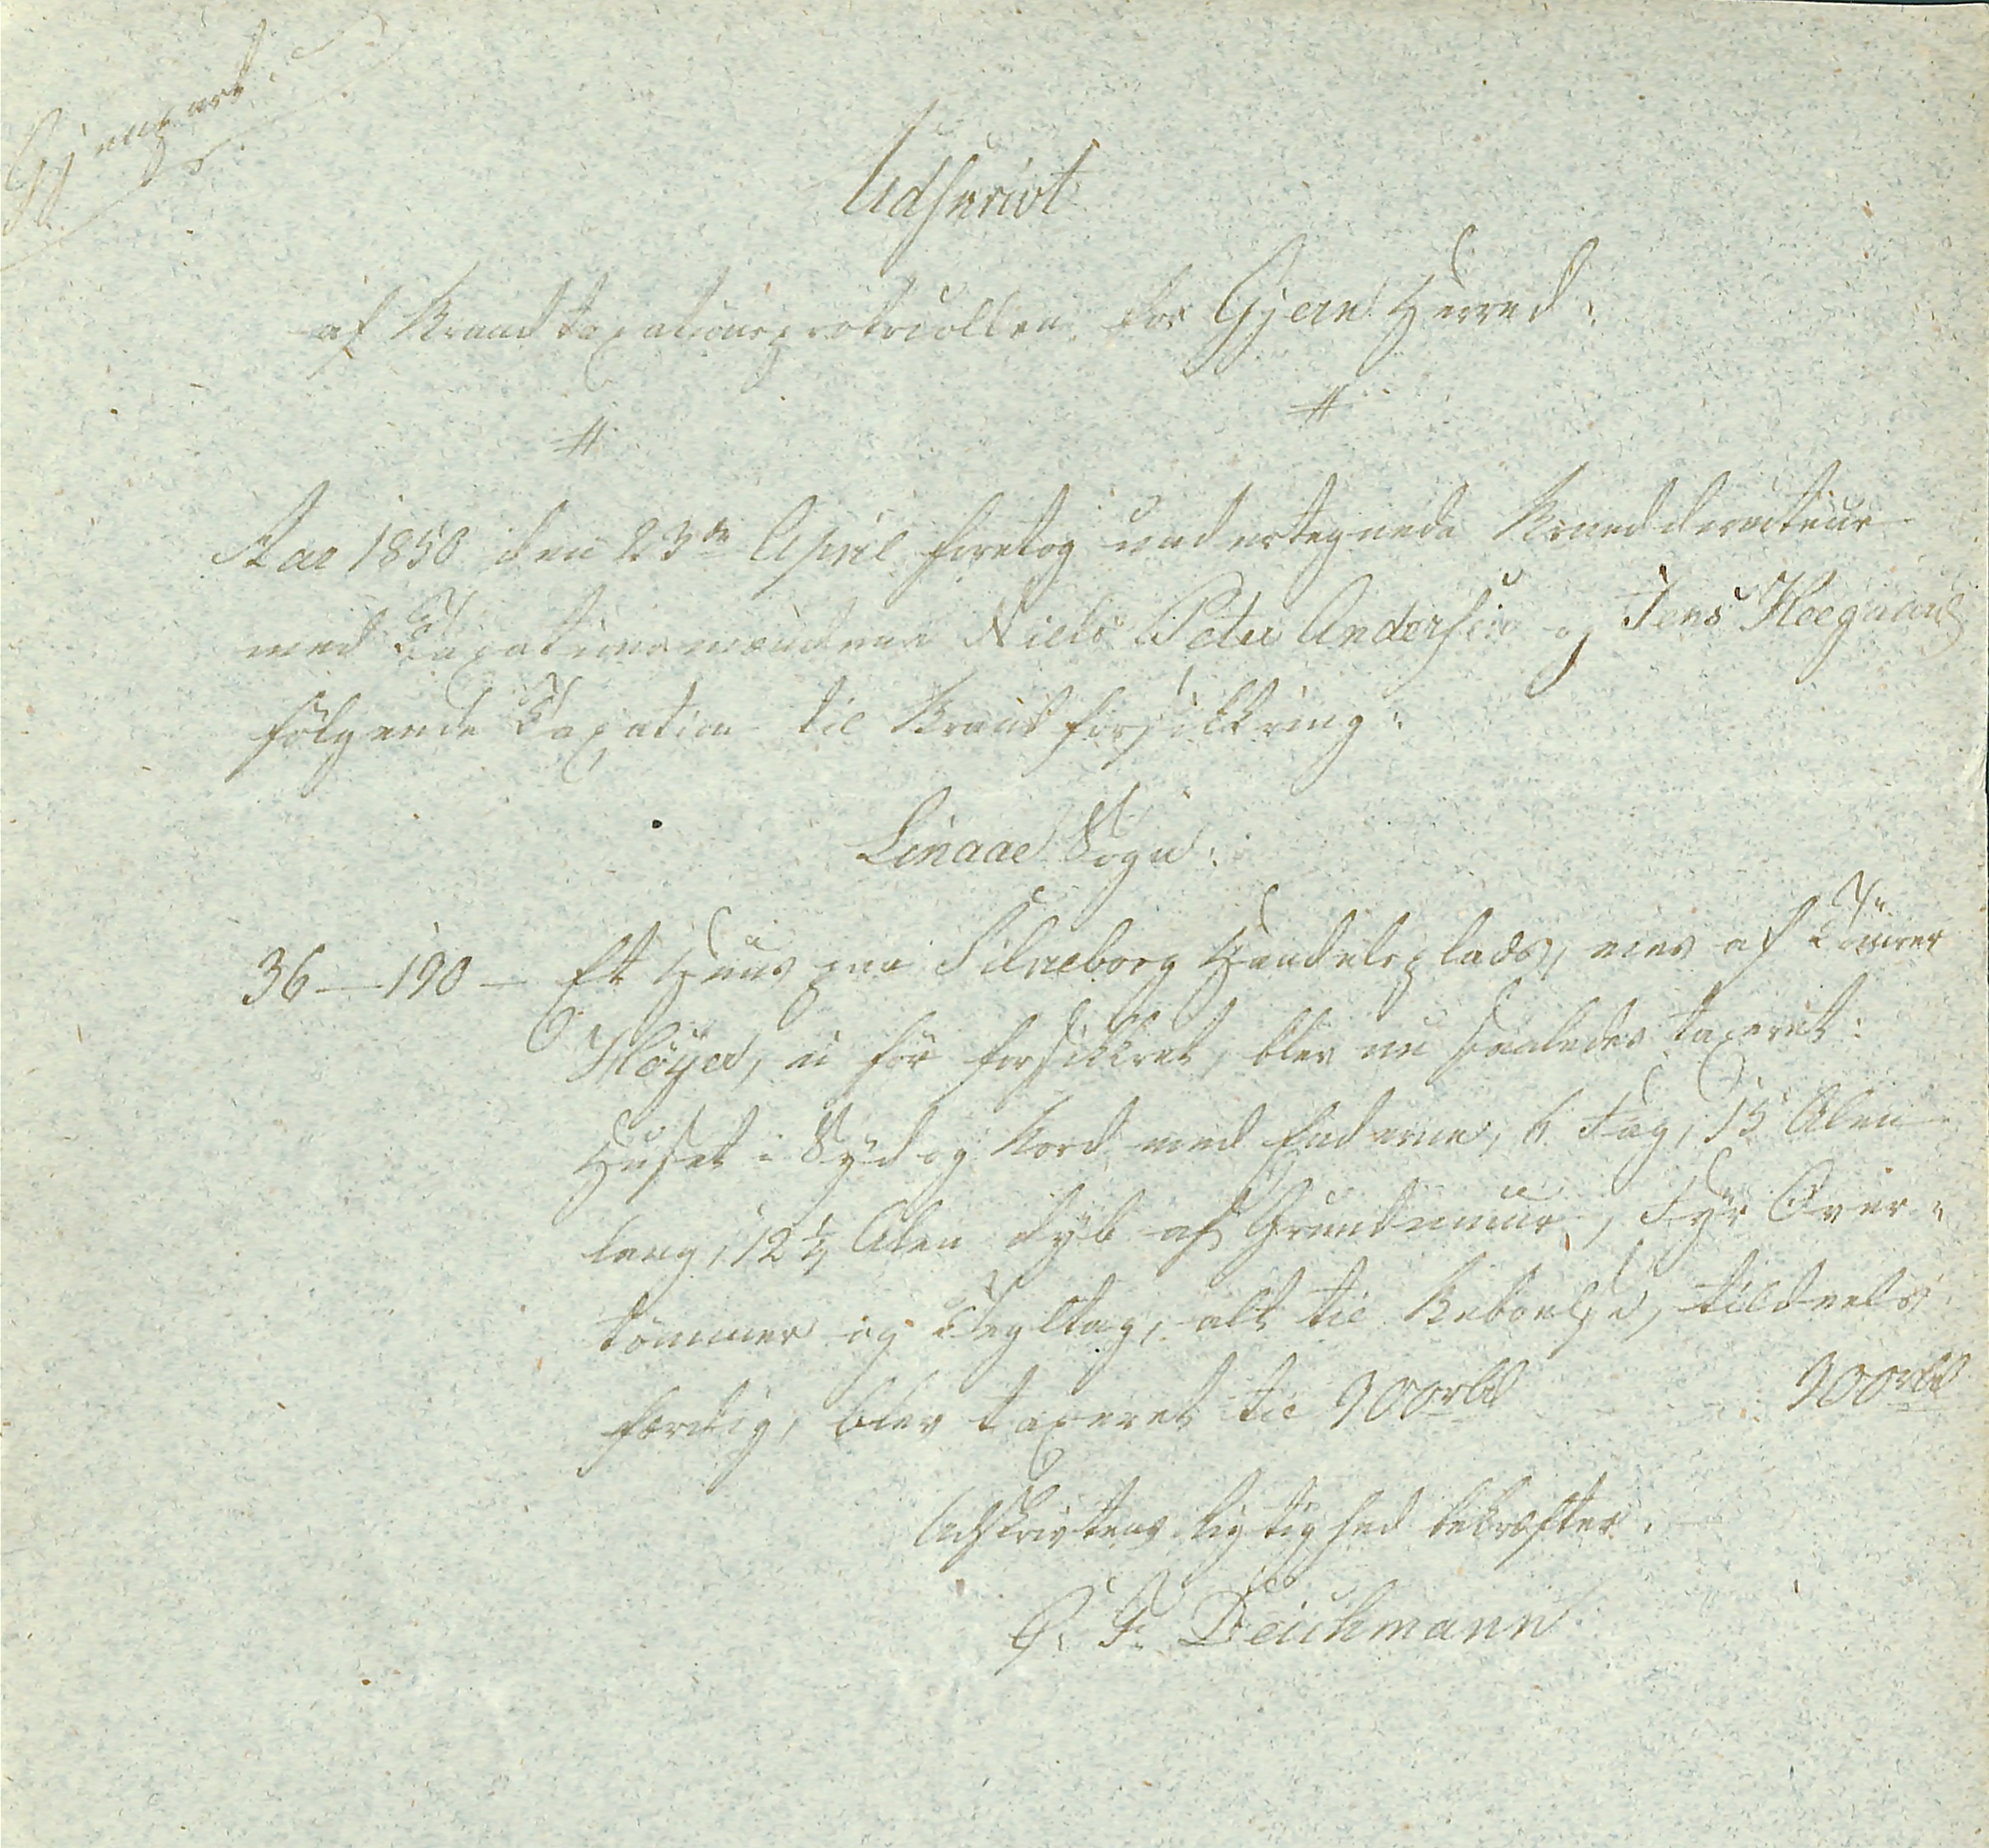 Gjenpart.
Udskrivt
af Brandtaxationsprotocollen for Gjern Herred.
Aar 1850 den 23de April foretog undertegnede Branddirecteur
med Taxationsmændene Niels Peter Andersen og Jens Hoegaard
følgende Taxation til Brandforsikkring:
Linaae Sogn:
36-190- Et Huus paa Silkeborg Handelsplads, eies af Tömrer
Höyer, ei för forsikkret, blev nu saaledes taxeret:
Huset i Syd og Nord med Enderne, 6 Fag, 15 Alen
lang, 12½ Alen dyb af Grundmuur, Fyr Over-
tömmer og Tegltag, alt til Beboelse, tildeels
færdig, blev taxeret til 900rbd 900rbd
Udskrivtens Rigtighed bekræfter.
P. F. Deichmann